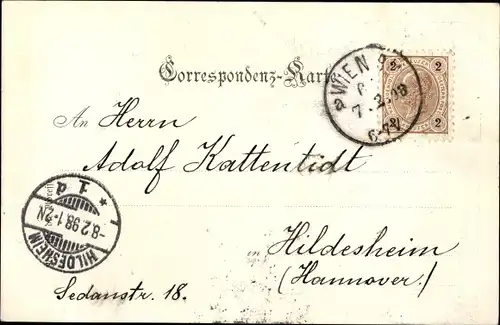 Correspondenz-Karte
WIEN
7.2.98
6-7N
2 2
2 2
An Herrn
Adolf Kattentidt
HILDESHEIM
-8.2.98.1-2N.
1.d
in Hildesheim
(Hannover.)
Sedanstr. 18.